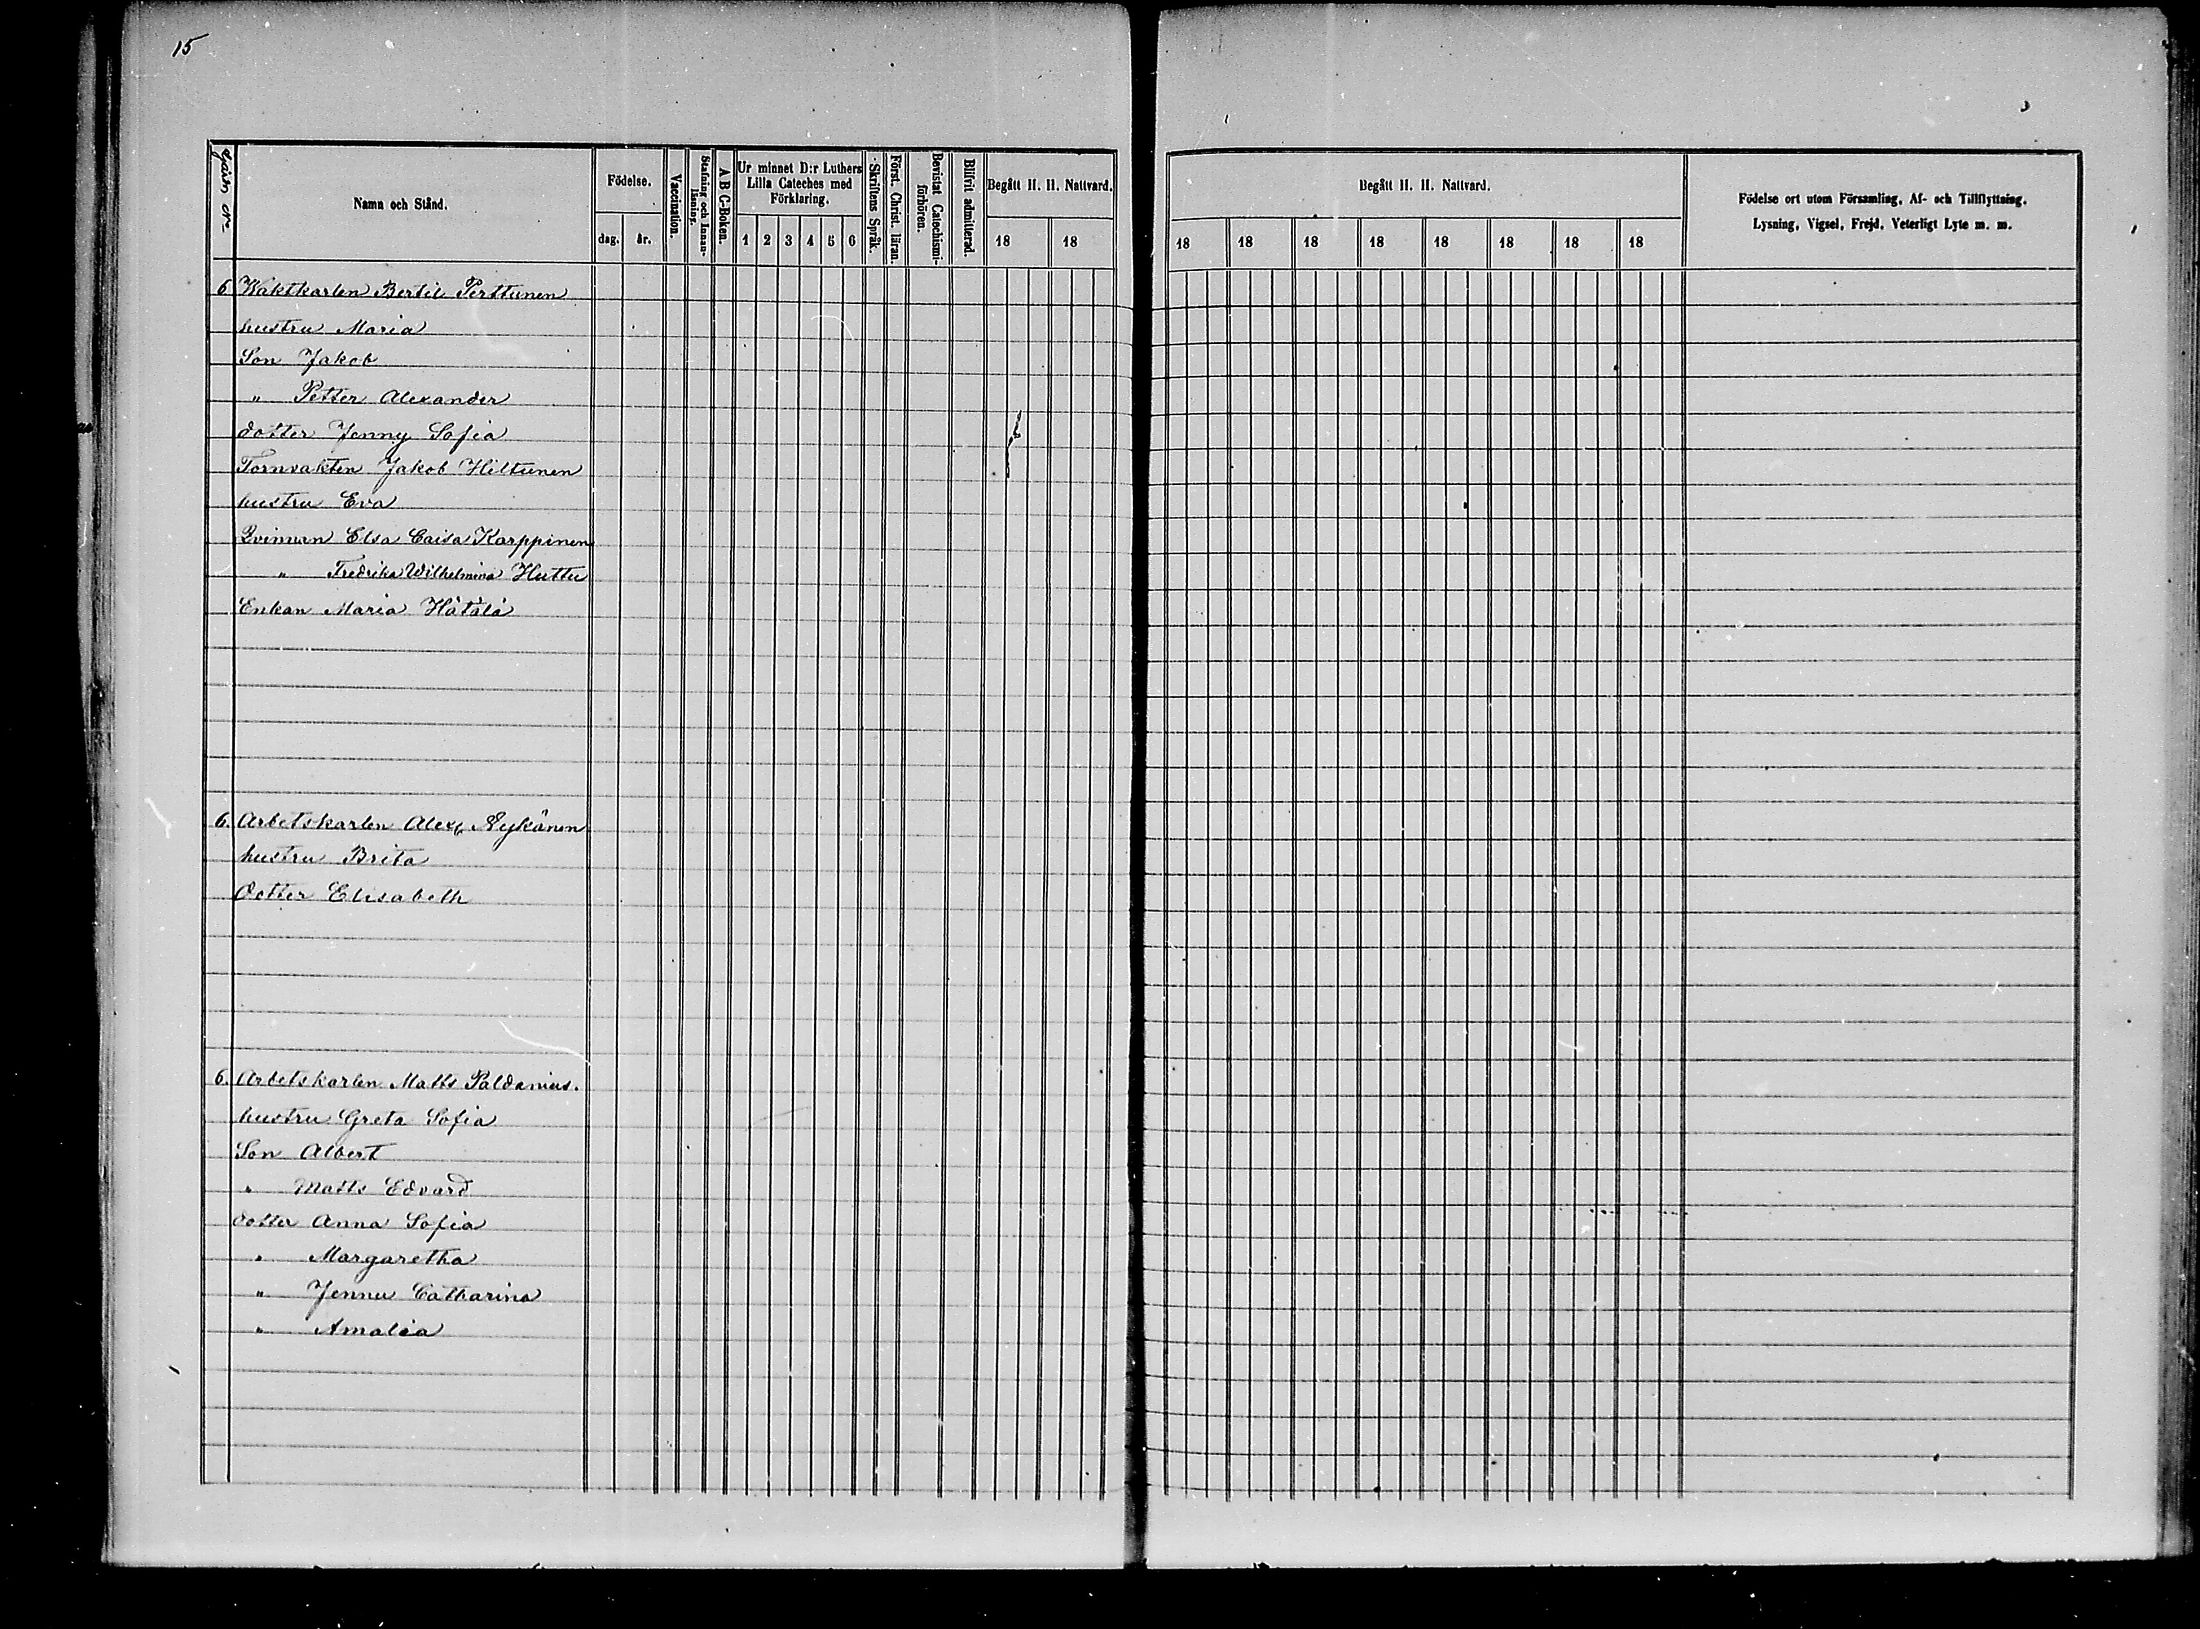 15
Gårds No
Namn och Stånd.
Födelse.
dag.
år.
Vaccination.
Stafning och Innanläsning.
A B C-Boken.
Ur minnet D:r Luthers Lilla Cateches med Förklaring.
1 2 3 4 5 6
Skriftens Språk.
Först. Christ. läran.
Bevistat Catechismi-förhören.
Blifvit admitterad.
Begått H. H. Nattvard.
18 18
Begått H. H. Nattvard.
18 18 18 18 18 18 18 18
Födelse ort utom Församling, Af- och Tillflyttning,
Lysning, Vigsel, Frejd, Veterligt Lyte m. m.
6 Waktkarlen Bertil Perttunen
hustru Maria
Son Jakob
" Petter Alexander
dotter Jenny Sofia
Tornvakten Jakob Hiltunen
hustru Eva
Qvinnan Elsa Caisa Karppinen
" Fredrika Wilhelmina Huttu
Enkan Maria Hätälä
6. Arbetskarlen Alex. Nykänen
hustru Brita
dotter Elisabeth
6. Arbetskarlen Matts Paldanius.
hustru Greta Sofia
Son Albert
" Matts Edvard
dotter Anna Sofia
" Margaretha
" Jenny Catharina
" Amalia